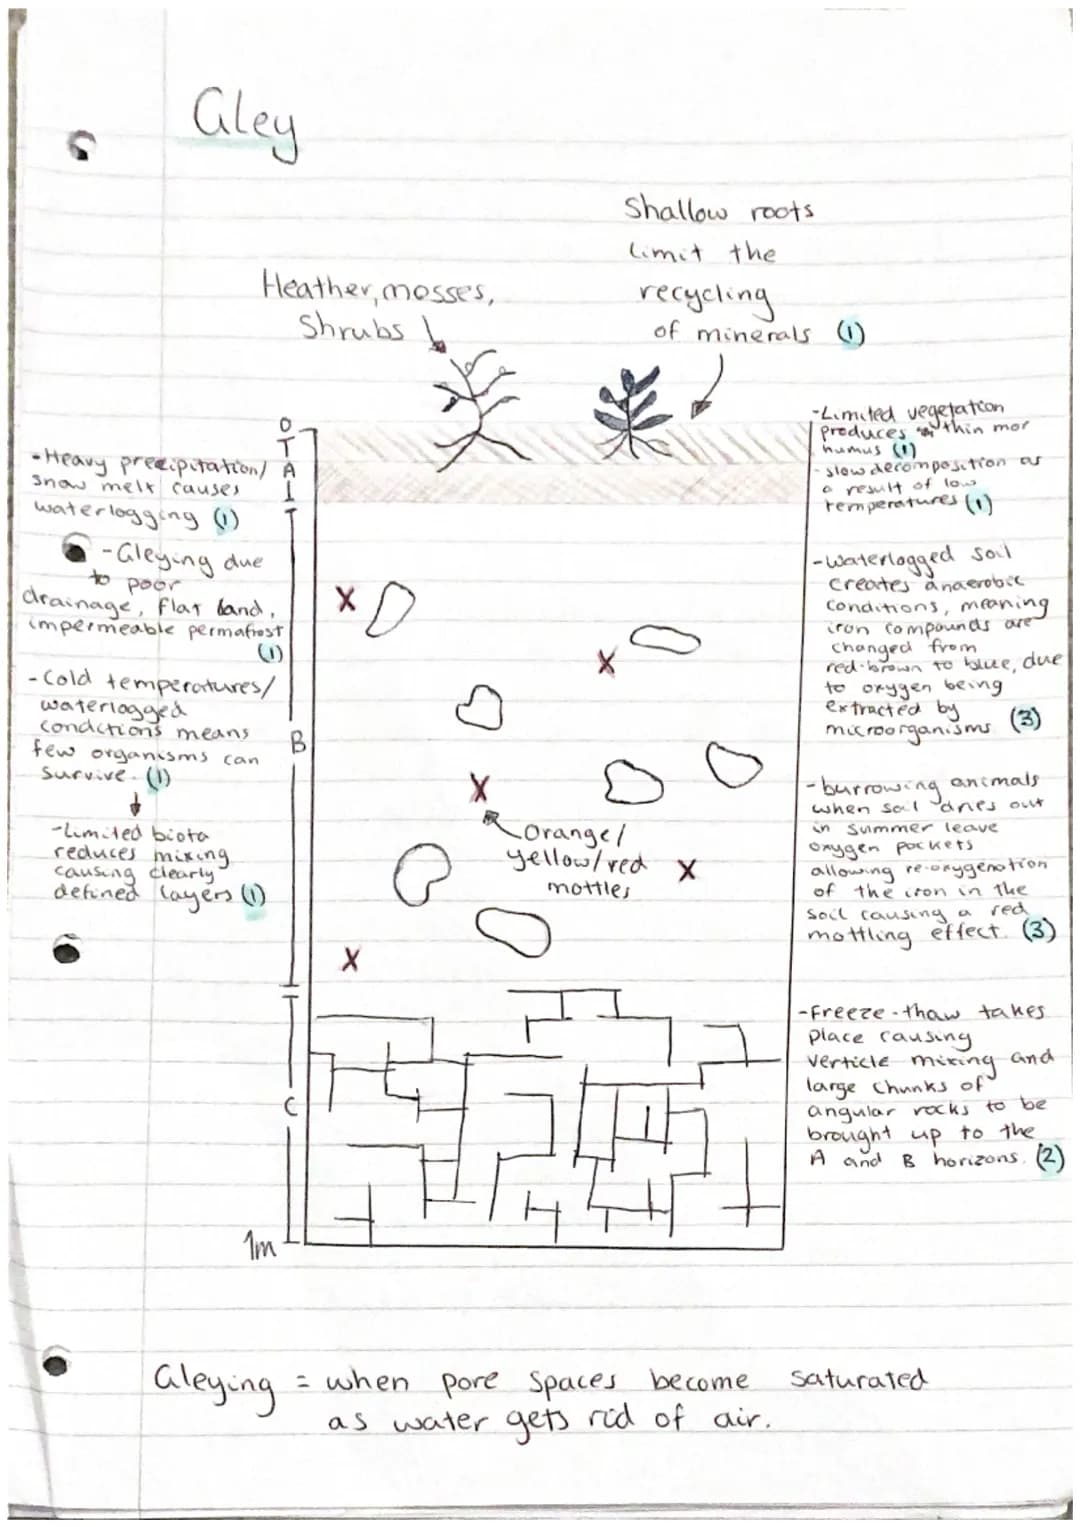 Gley
Shallow roots
limit the
recycling
of minerals (1)
Heather, mosses,
Shrubs
O
A
-Heavy precipitation/
snow melt causes
waterlogging (1)
-Gleying due
to poor
drainage, flat land,
impermeable permafrost
(1)
-Cold temperatures/
waterlogged
conditions means
few organisms can
survive. (1)
-Limited biota
reduces mixing
causing clearly
defined layers (1)
B
C
1m
X
X
X
X
X
Orange/
yellow/red
mottles
-Limited vegetation
produces thin mor
humus (1)
-slow decomposition as
a result of low
temperatures (1)
-Waterlogged soil
creates anaerobic
conditions, meaning
iron compounds are
changed from
red-brown to blue, due
to oxygen being
extracted by
microorganisms. (3)
-burrowing animals
when soil dries out
in summer leave
oxygen pockets
allowing re-oxygenation
of the iron in the
soil causing a red
mottling effect. (3)
-Freeze-thaw takes
place causing
verticle mixing and
large chunks of
angular rocks to be
brought up to the
A and B horizons. (2)
Gleying = when pore spaces become saturated
as water gets rid of air.